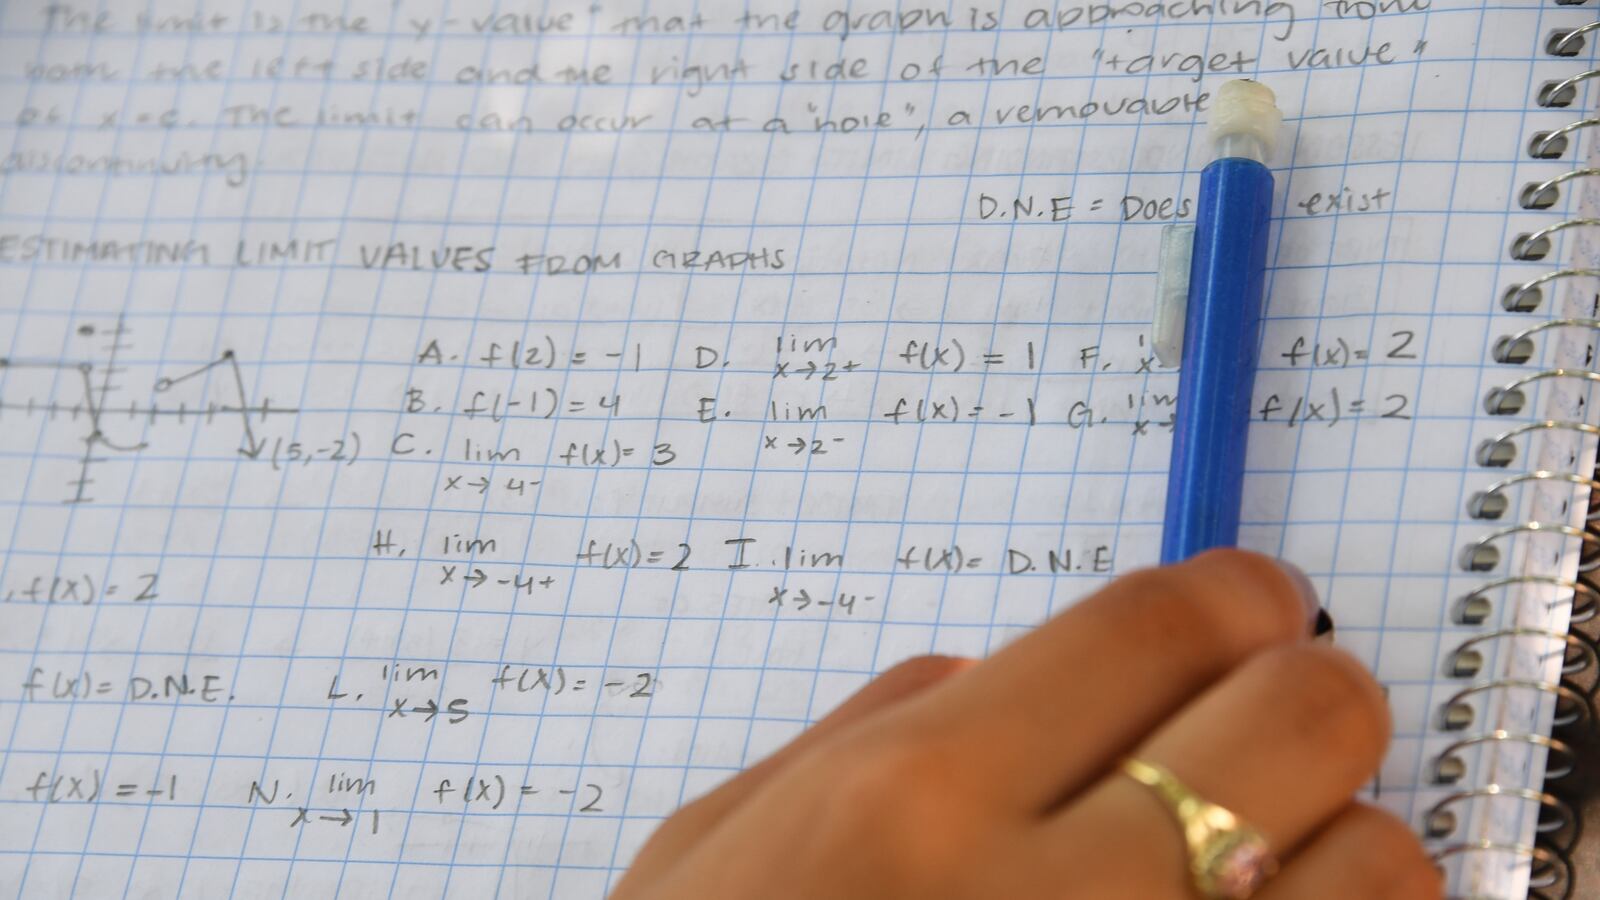 The limit is the "y-value" that the graph is approaching from
both the left side and the right side of the "target value"
of x=c. The limit can occur at a "hole", a removable
discontinuity.
D.N.E = Does exist
ESTIMATING LIMIT VALUES FROM GRAPHS
A. f(2) = -1 D. lim x→2+ f(x) = 1 F. f(x) = 2
B. f(-1) = 4 E. lim x→2- f(x) = -1 G. lim f(x) = 2
(5,-2) C. lim x→4- f(x) = 3
f(x) = 2 H. lim x→-4+ f(x) = 2 I. lim x→-4- f(x) = D.N.E
f(x) = D.N.E. L. lim x→5 f(x) = -2
f(x) = -1 N. lim x→1 f(x) = -2